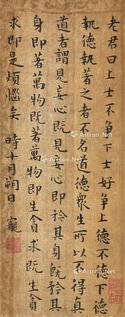 老君曰上士不爭下士好爭上德不德下德
執德執著之者不名道德眾生所以不得真
道者謂見妄心既見妄心即矜其身既矜其
身即著萬物既著萬物即生貪求既生貪
求即是煩惱矣 時十月朔日 寵